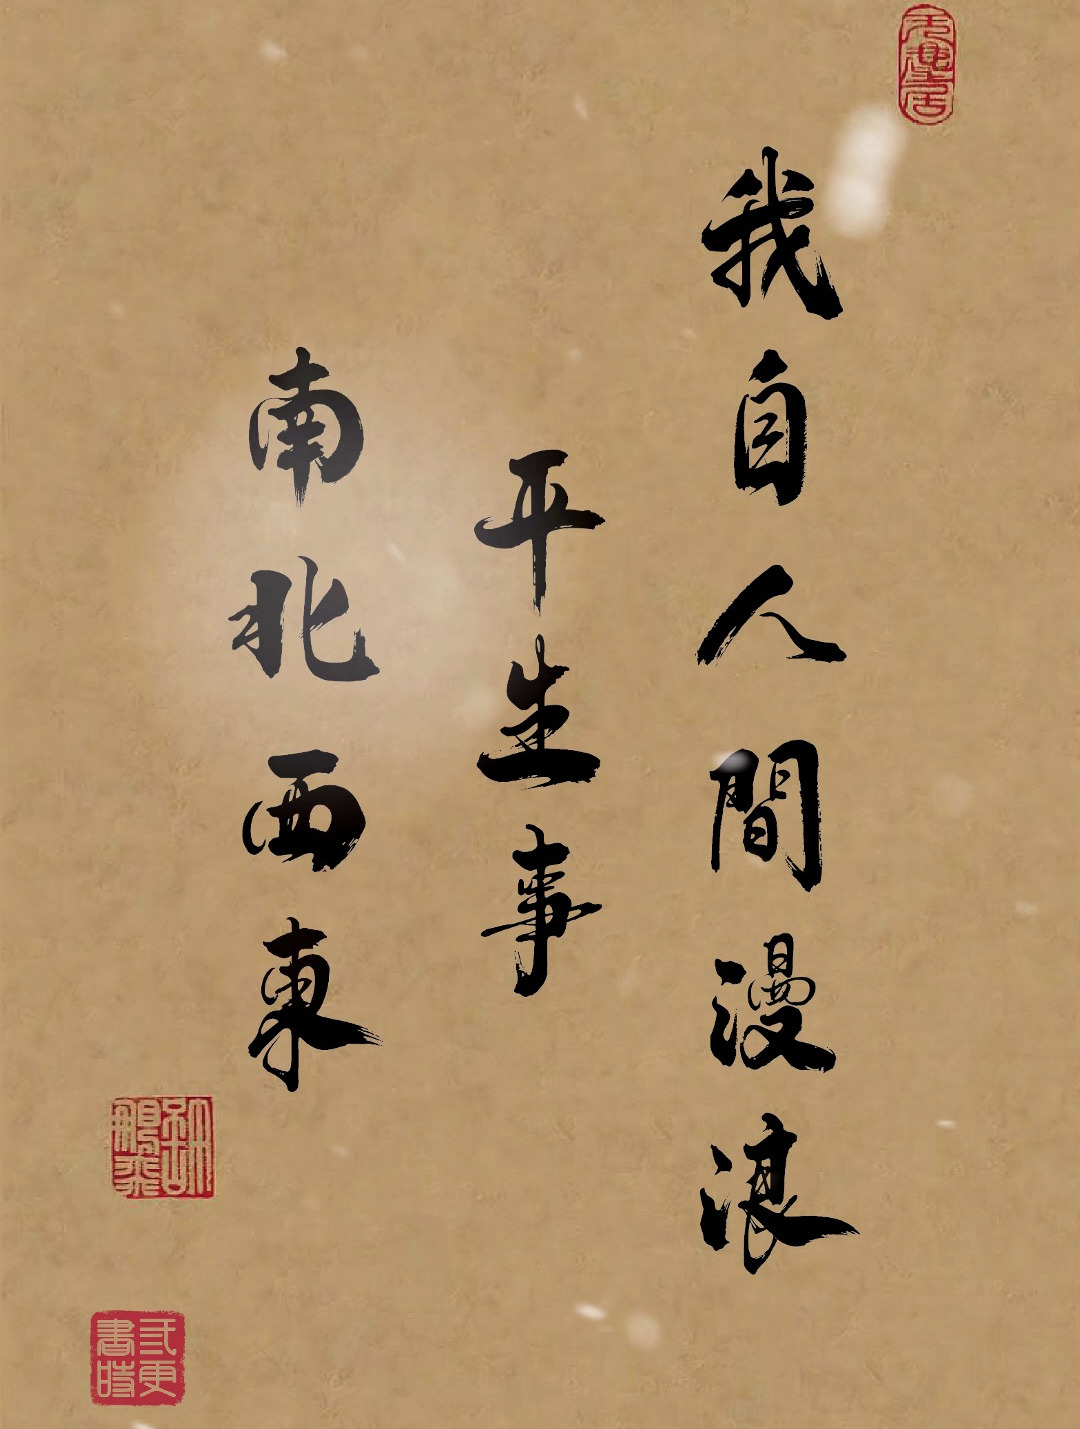 我自人間漫浪
平生事
南北西東
三更
書時